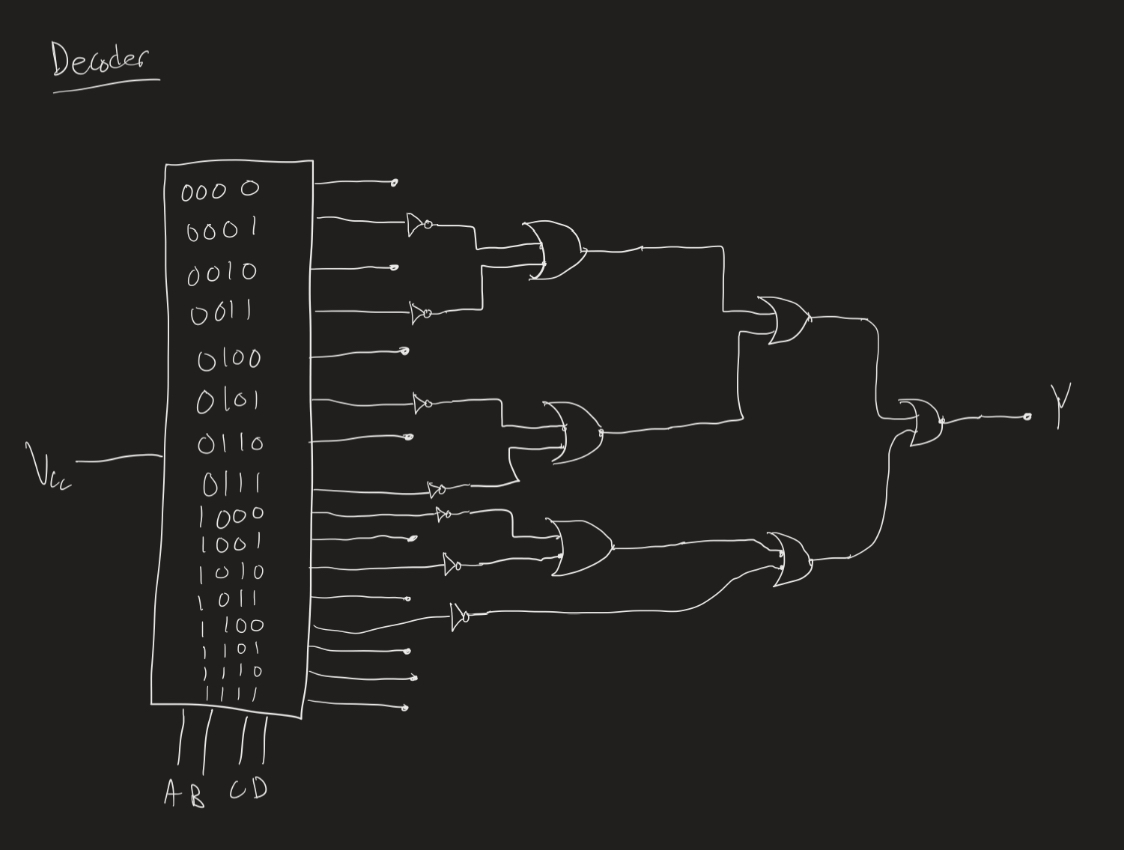 Decoder
000 0
0001
0010
0011
0100
0101
0110
0111
1000
1001
1010
1011
1100
1101
1110
1111
Vcc
Y
A B C D